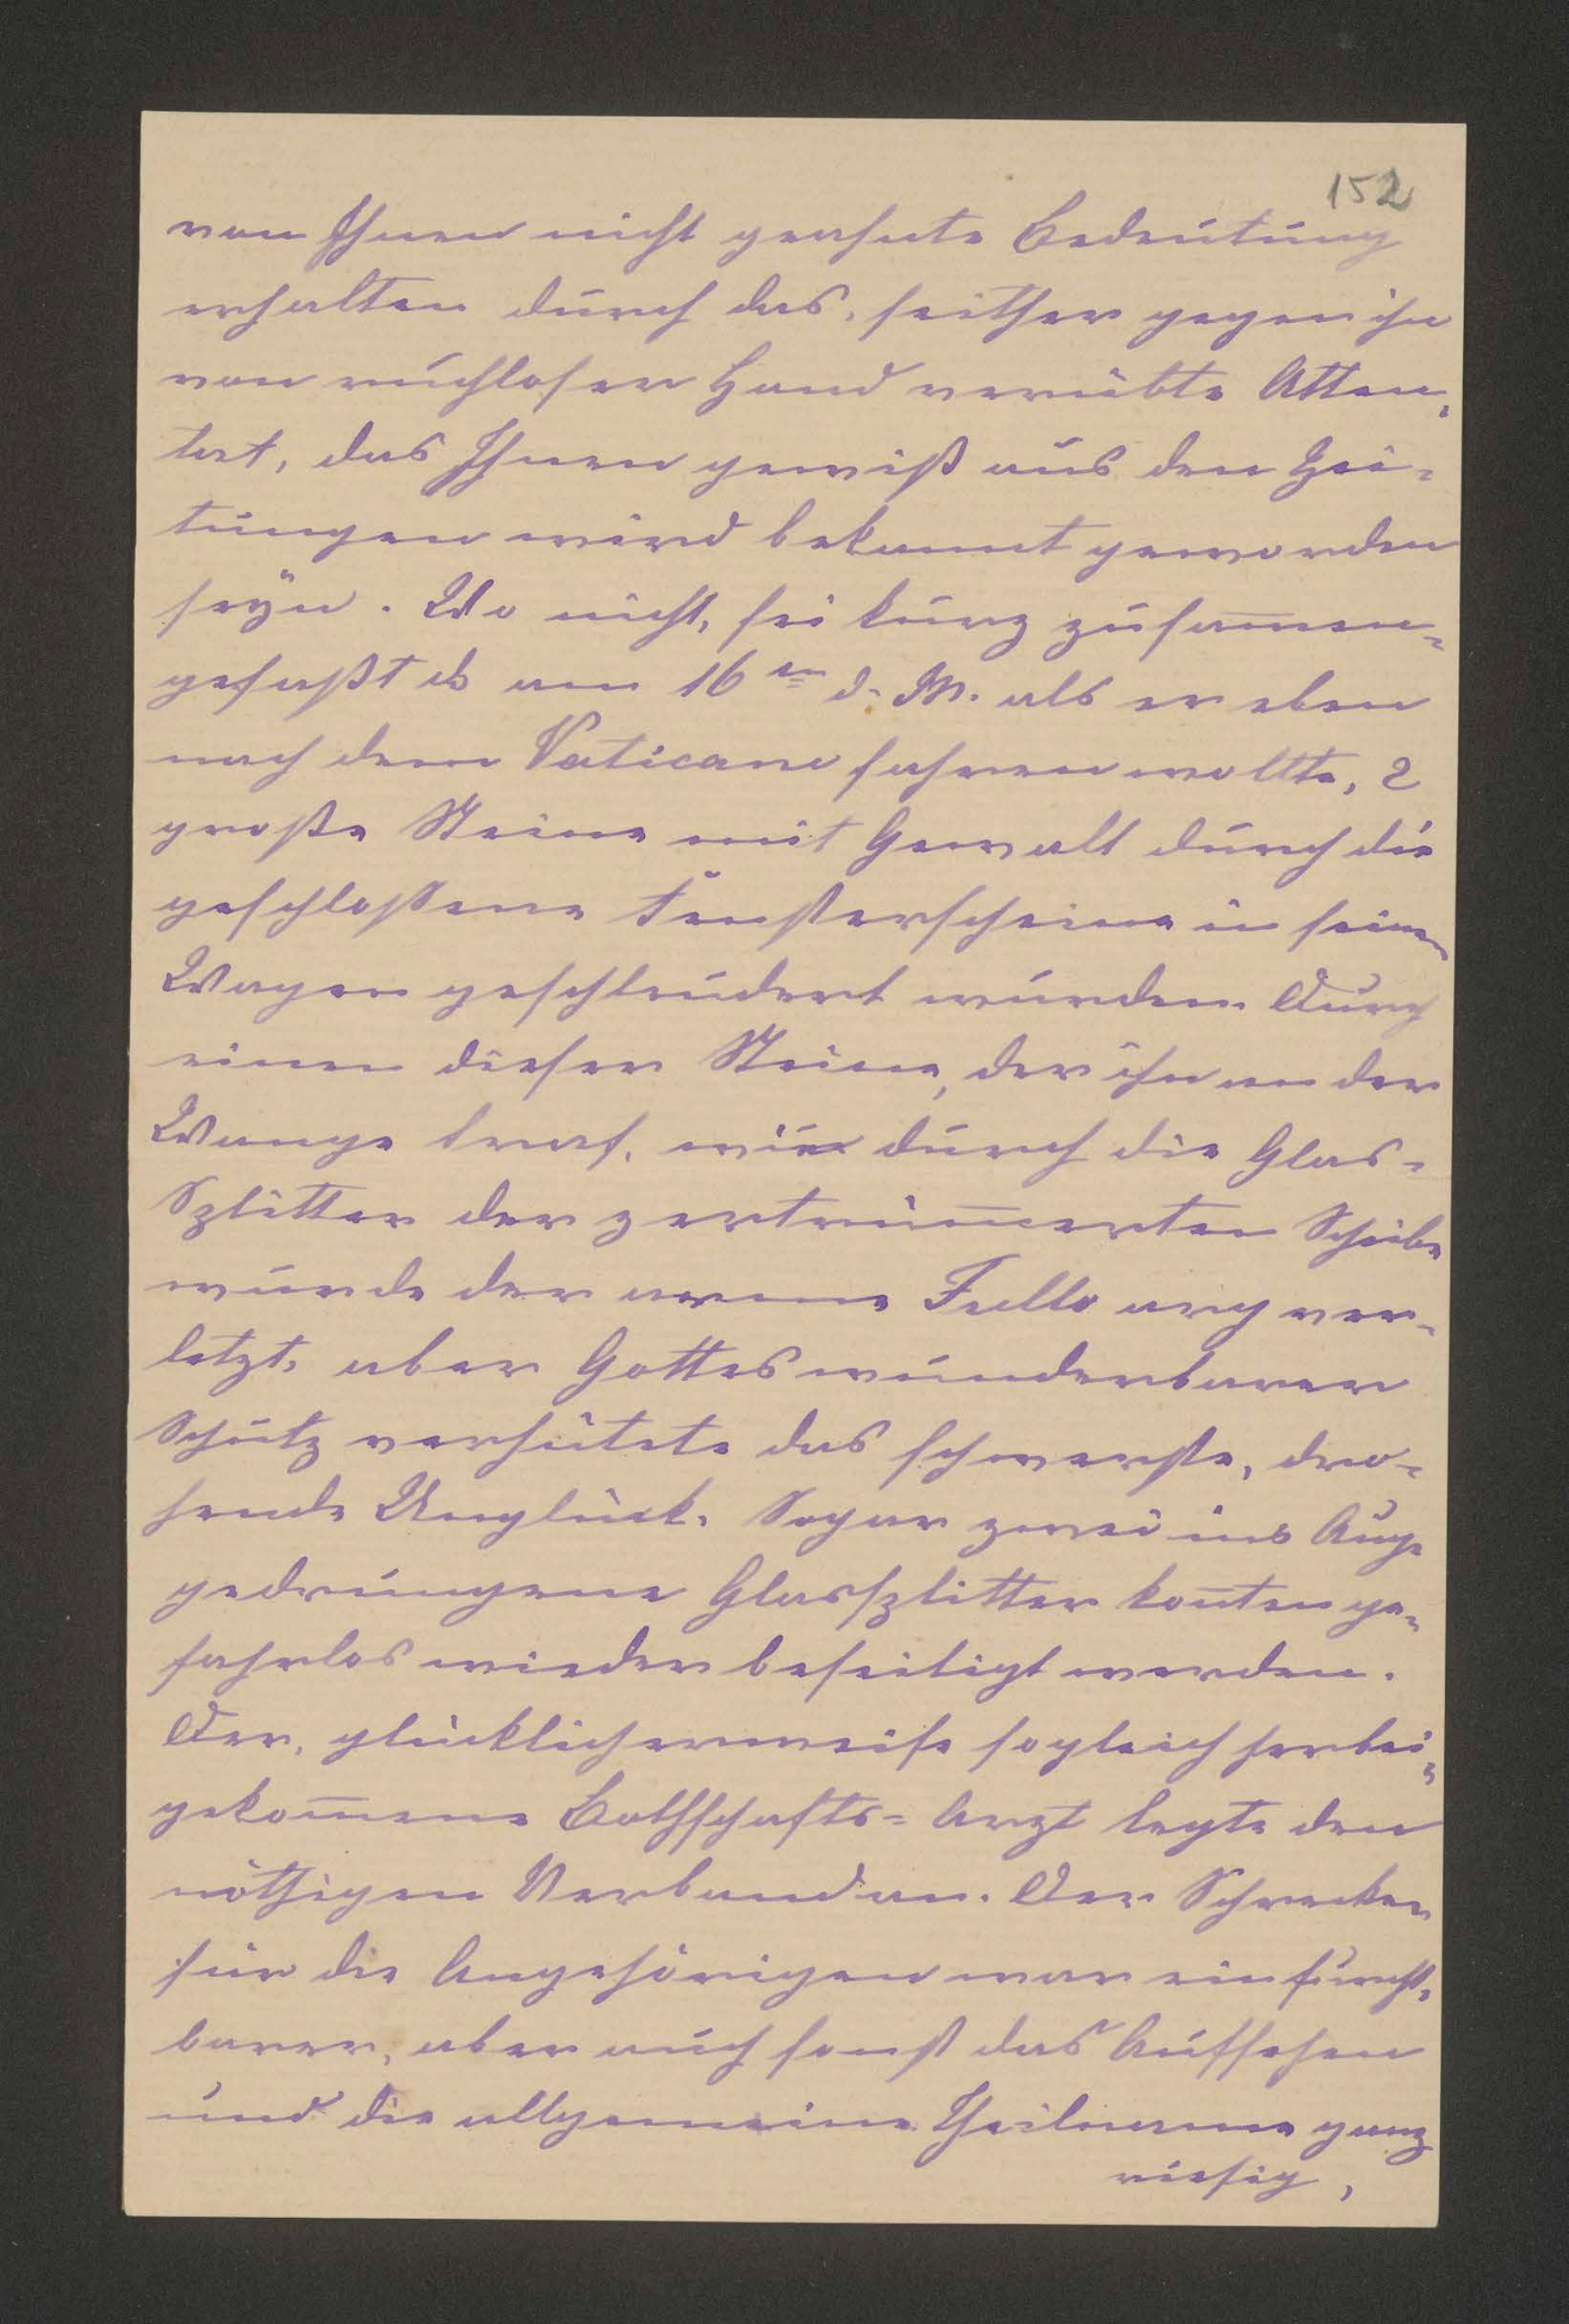 152
von Ihnen nicht geahnte Bedeutung
erhalten durch das, seither gegen ihn
von ruchloser Hand verübte Atten-
tat, das Ihnen gewiß aus den Zei-
tungen wird bekannt geworden
seÿn. Wo nicht, sei kurz zusam̅en-
gefaßt daß am 16en d. M. als er eben
nach dem Vaticane fahren wollte, 2
große Steine mit Gewalt durch die
geschloßene Fensterscheine in seinen
Wagen geschleudert wurden. Durch
einen dieser Steine, der ihn an der
Wange traf, wie durch die Glas-
Splitter der zertrüm̅erten Scheibe
wurde der arme Fullo arg ver-
letzt, aber Gottes wunderbarer
Schutz verhütete das schwerste, dro-
hende Unglück. Sogar zwei ins Auge
gedrungene Glassplitter kon̅ten ge-
fahrlos wieder beseitigt werden.
Der, glücklicherweise sogleich herbei-
gekom̅ene Bothschafts-Arzt legte den
nöthigen Verband an. Der Schrecken
für die Angehörigen war ein furcht-
barer, aber auch sonst das Aufsehen
und die allgemeine Theilname ganz
riesig,